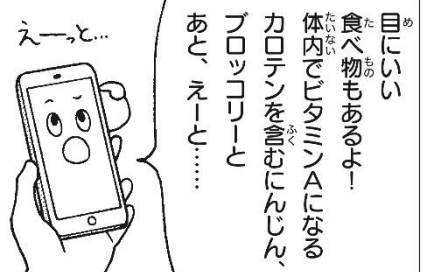 目にいい
食べ物もあるよ！
体内でビタミンAになる
カロテンを含むにんじん、
ブロッコリーと
あと、えーと……
えーっと…